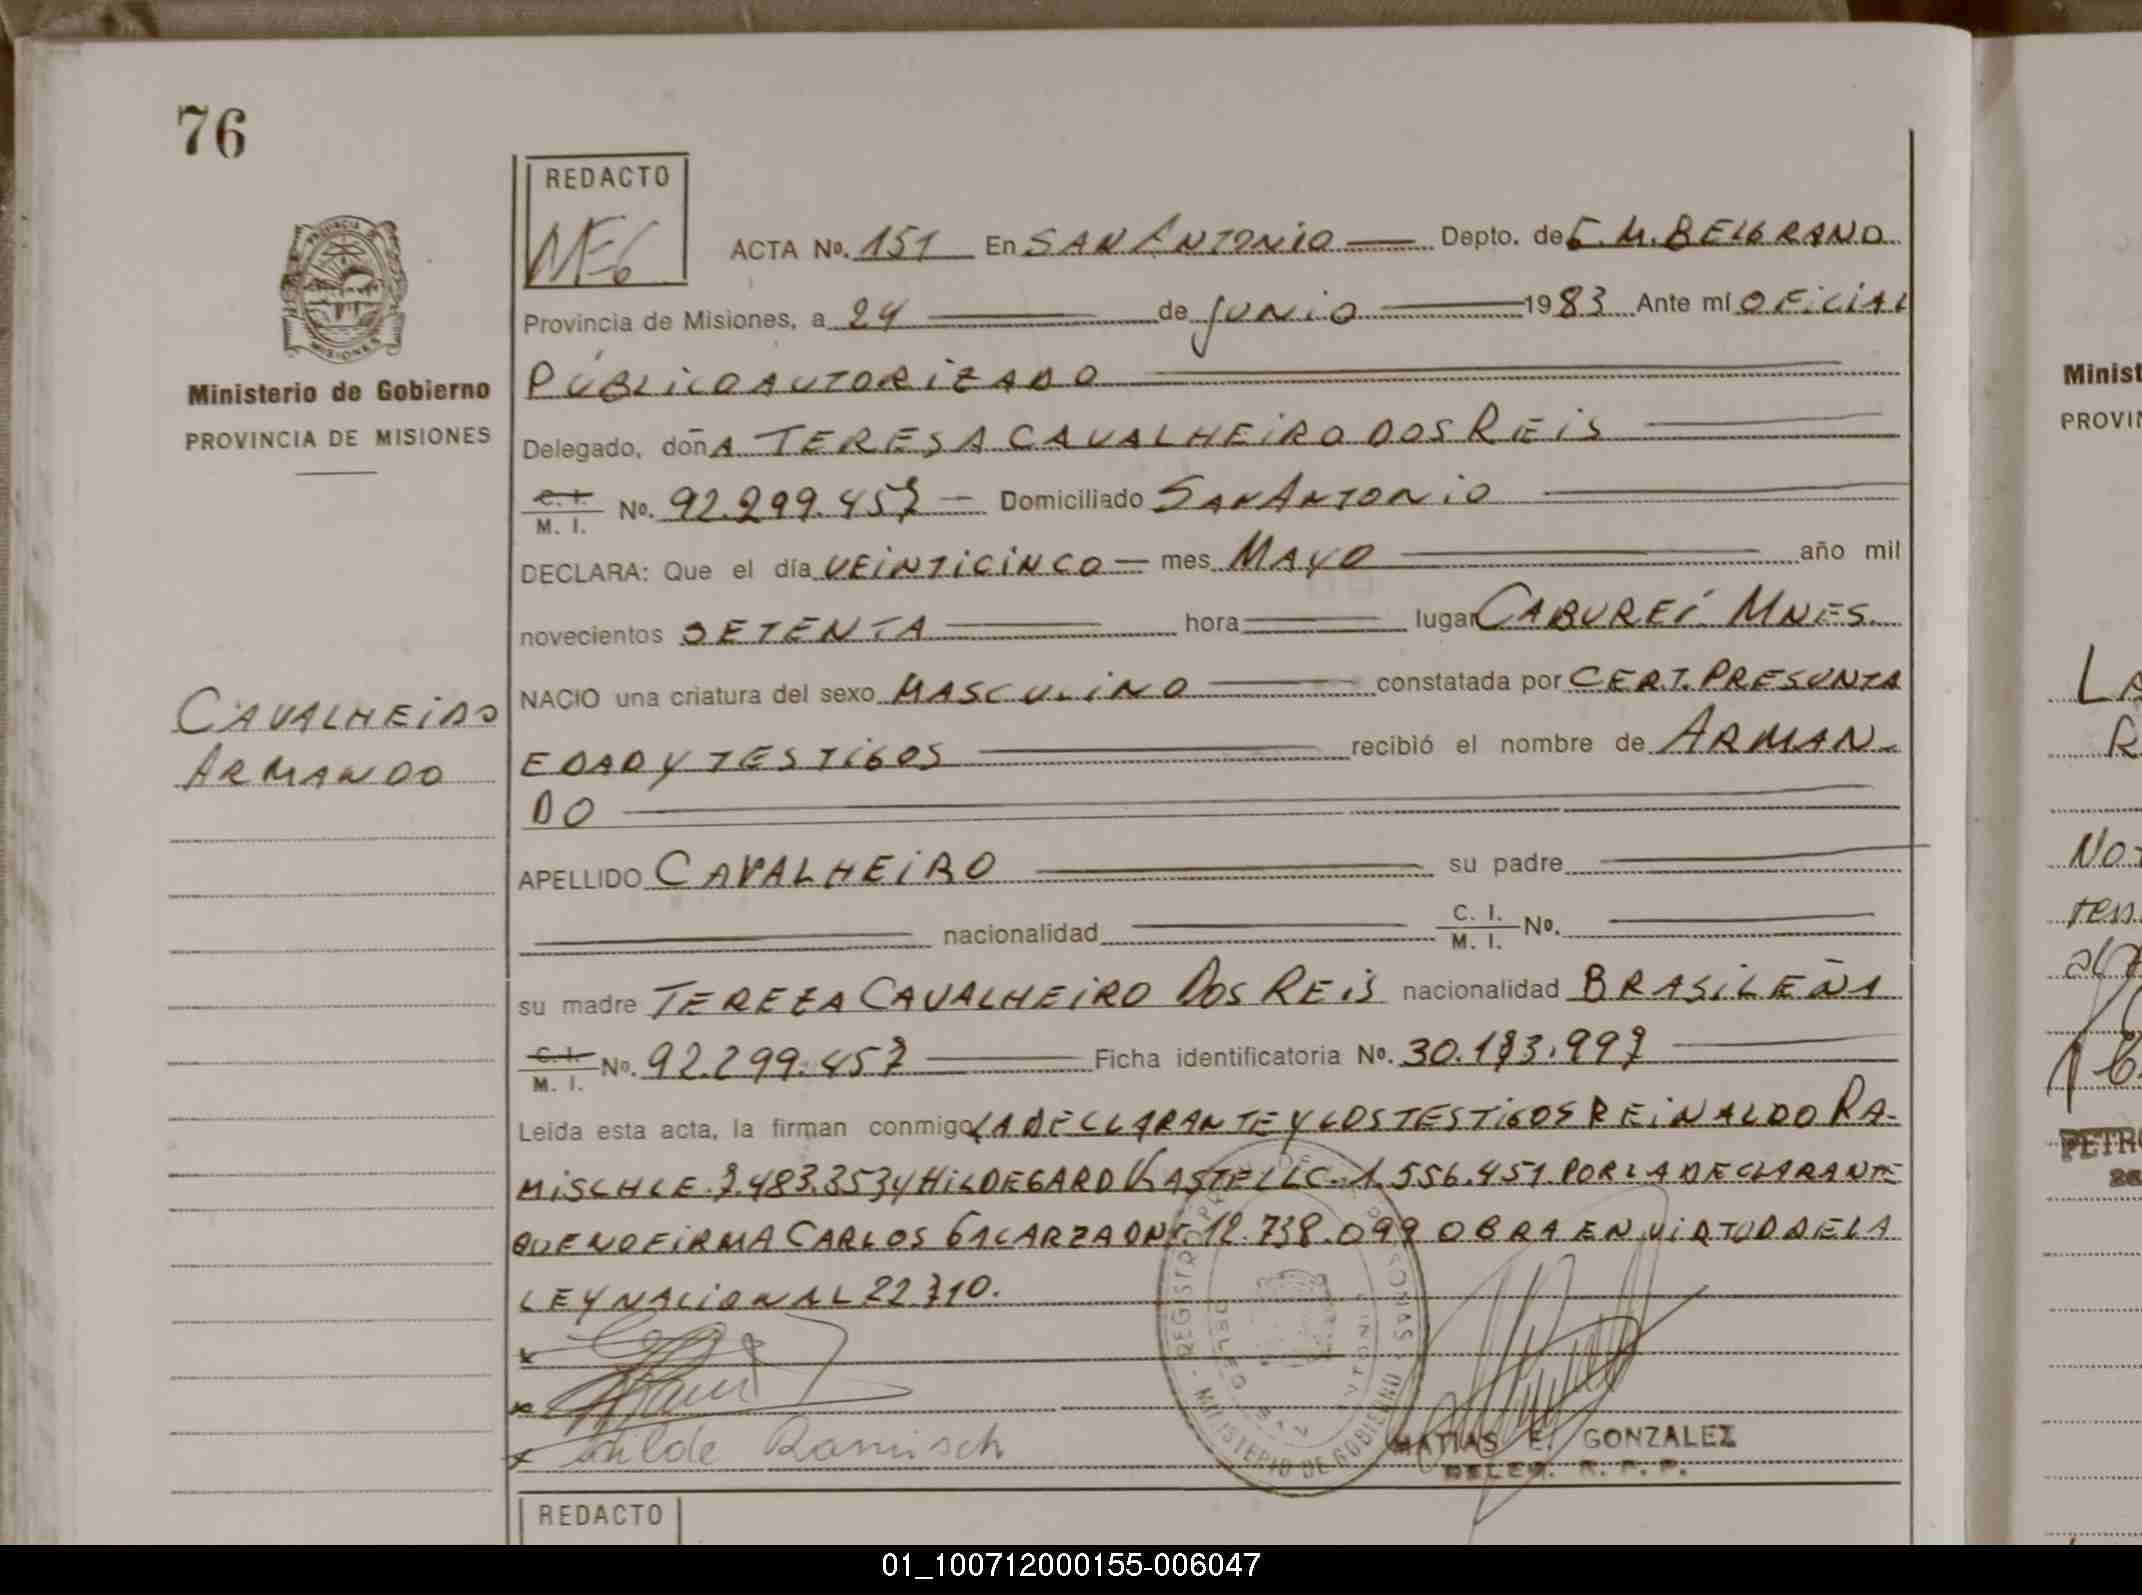 76
REDACTO
ACTA No. 151 En SAN ANTONIO Depto. de G. M. BELGRANO
Provincia de Misiones, a 24 de JUNIO 1983 Ante mí OFICIAL
PÚBLICO AUTORIZADO
Delegado, doñA TERESA CAVALHEIRO DOS REIS
C. I. / M. I. No. 92.299.457 Domiciliado SAN ANTONIO
DECLARA: Que el día VEINTICINCO mes MAYO año mil
novecientos SETENTA hora lugar CABUREÍ MNES.
NACIO una criatura del sexo MASCULINO constatada por CERT. PRESUNTA
EDAD Y TESTIGOS recibió el nombre de ARMAN-
DO
APELLIDO CAVALHEIRO su padre
nacionalidad C. I. / M. I. No.
su madre TEREZA CAVALHEIRO DOS REIS nacionalidad BRASILEÑA
C. I. / M. I. No. 92.299.457 Ficha identificatoria No. 30.173.997
Leida esta acta, la firman conmigo LA DECLARANTE Y LOS TESTIGOS REINALDO RA-
MISCH LE. 7.483.353 Y HILDEGARD KASTELLC. 1.556.451. POR LA DECLARANTE
QUE NO FIRMA CARLOS GALARZA DNI. 12.738.099 OBRA EN VIRTUD DE LA
LEY NACIONAL 22.710.
Hilde Ramisch
MATIAS E. GONZALEZ
DELEG. R. P. P.
REGISTRO MINISTERIO DE GOBIERNO
REDACTO
PROVINCIA DE MISIONES
Ministerio de Gobierno
PROVINCIA DE MISIONES
CAVALHEIRO
ARMANDO
Minist
PROVIN
LA
R
No
ten
PETR
01_100712000155-006047